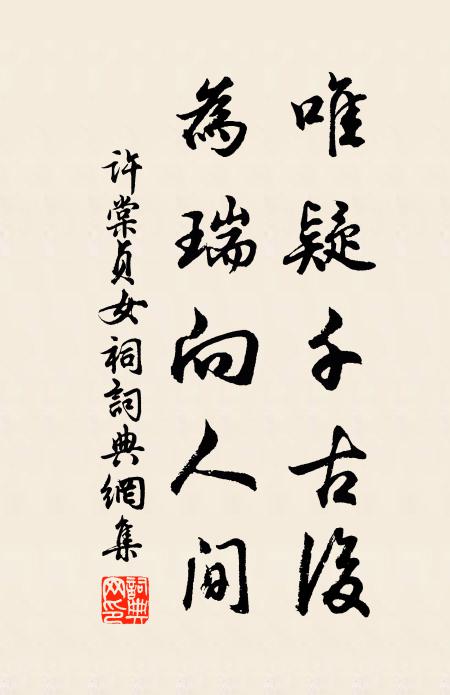 唯疑千古後
為瑞向人间
许棠貞女祠詞典網集
詞典网印